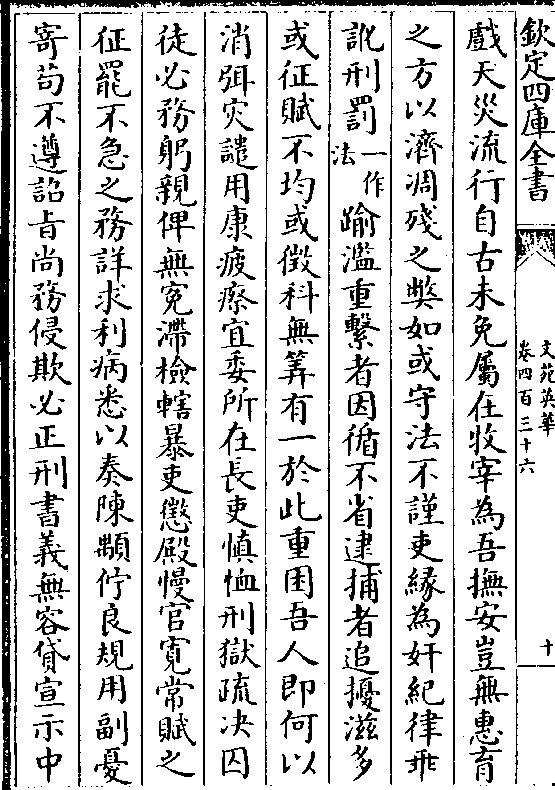 欽定四庫全書
文苑英華
卷四百三十六
十
戲天災流行自古未免屬在牧宰為吾撫安豈無惠育
之方以濟凋殘之弊如或守法不謹吏縁為奸紀律乖
訛刑罰一作法踰濫重繫者因循不省逮捕者追擾滋多
或征賦不均或徴科無筭有一於此重困吾人即何以
消弭灾譴用康疲瘵宜委所在長吏慎恤刑獄疏决囚
徒必務躬親俾無寃滯檢轄暴吏懲殿慢官寛常賦之
征罷不急之務詳求利病悉以奏陳顒佇良規用副憂
寄茍不遵詔㫖尚務侵欺必正刑書義無容貸宣示中